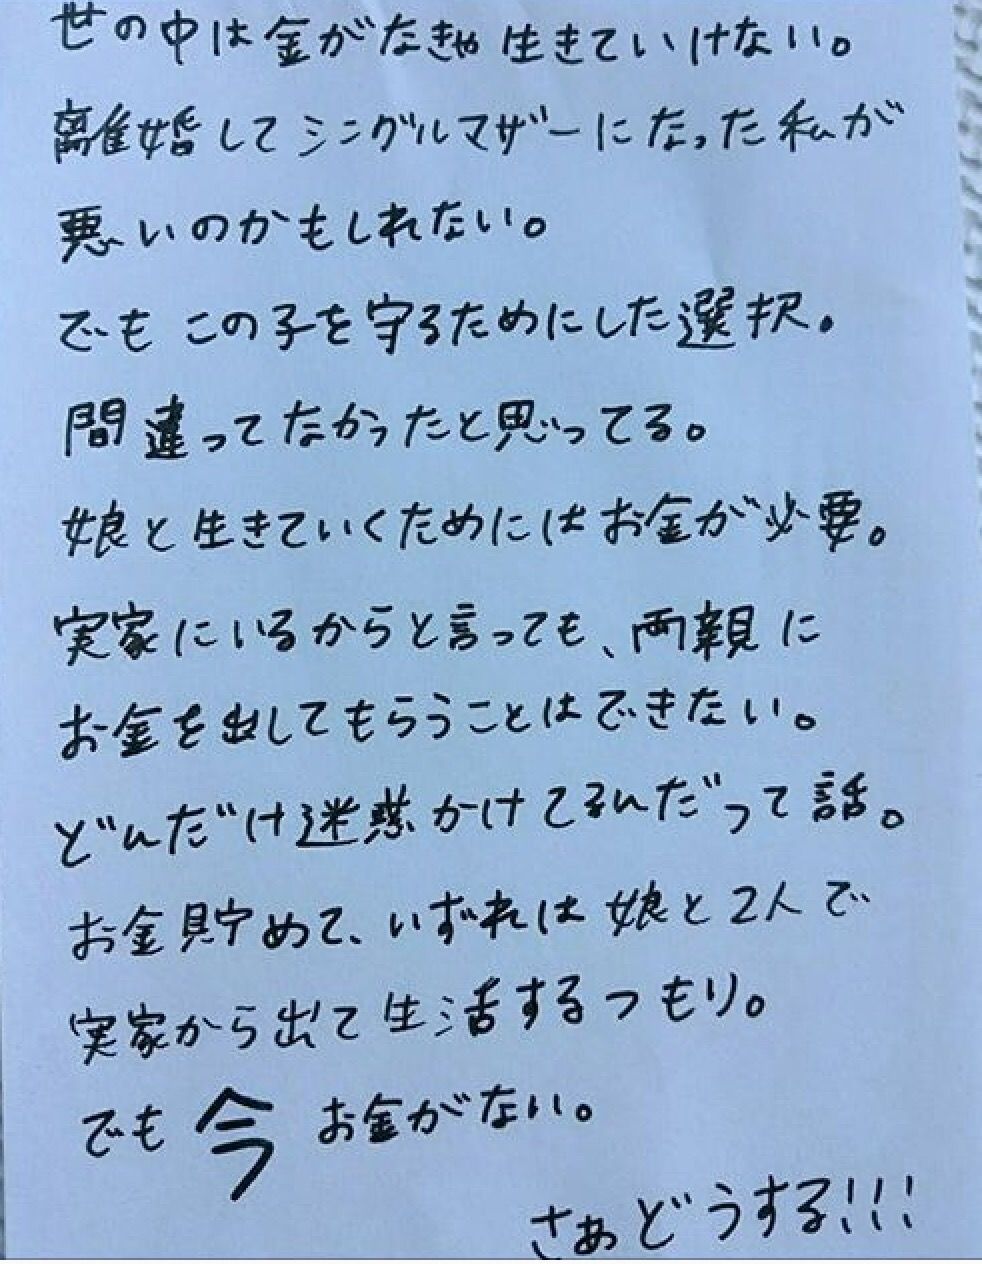 世の中は金がなきゃ生きていけない。
離婚してシングルマザーになった私が
悪いのかもしれない。
でもこの子を守るためにした選択。
間違ってなかったと思ってる。
娘と生きていくためにはお金が必要。
実家にいるからと言っても、両親に
お金を出してもらうことはできない。
どんだけ迷惑かけてるんだって話。
お金貯めて、いずれは娘と2人で
実家から出て生活するつもり。
でも今お金がない。
さぁどうする!!!